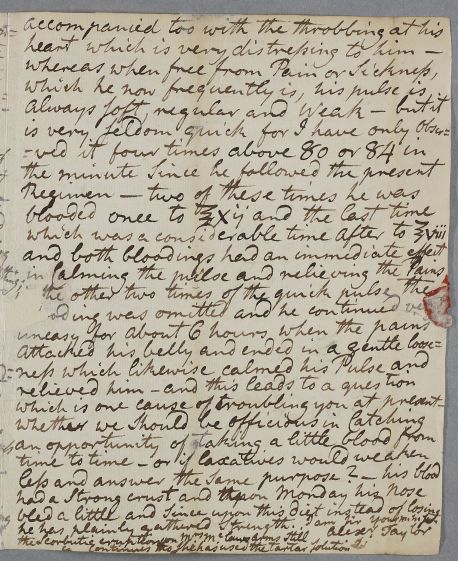 accompanied too with the throbbing at his
heart which is very distressing to him —
whereas when free from Pain or Sickness,
which he now frequently is, his pulse is
always soft, regular and weak — but it
is very seldom quick for I have only obser=
=ved it four times above 80 or 84 in
the minute since he followed the present
Regimen — two of these times he was
blooded once to ℥xij and the last time
which was a considerable time after to ℥viii
and both bloodings had an immediate effect
in calming the pulse and relieving the Pains
the other two times of the quick pulse the
ding was omitted and he continued
uneasy for about 6 hours when the pains
attacked his belly and ended in a gentle loose=
=ness which likewise calmed his Pulse and
relieved him — and this leads to a question
which is one cause of troubling you at present—
whether we should be officious in catching
an opportunity of taking a little blood from
time to time — or if laxatives would weaken
less and answer the same purpose? — his blood
had a strong crust and upon Monday his Nose
bled a little and since upon this Diet instead of losing
he has plainly gathered strength. I am sir yours
Alexr. Taylor
the scorbutic eruption on Mrs arms still
continues tho she has used the tartar solution